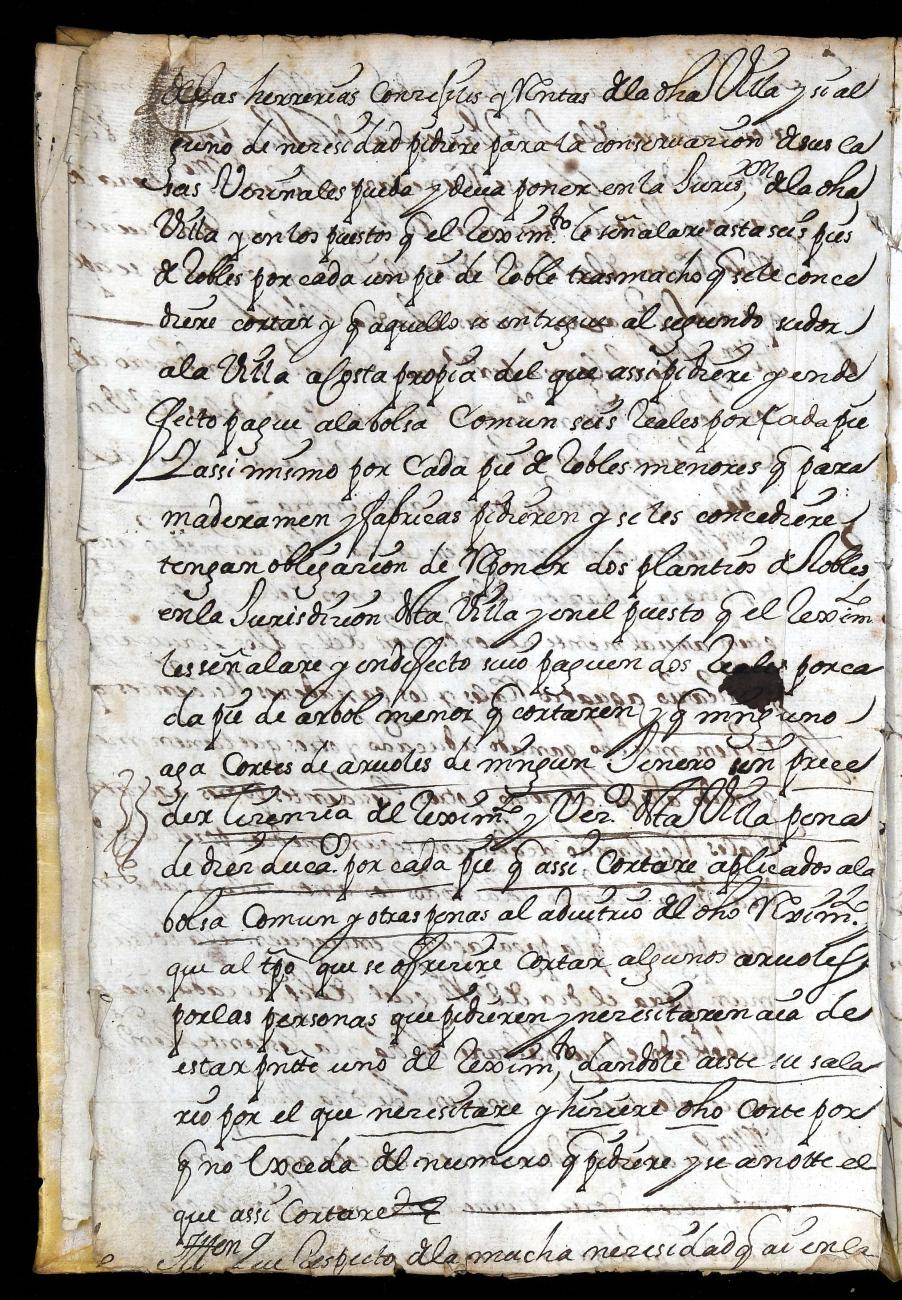 de las herrerias Conzejiles q Rentas de la dha Villa y si al
guno de nezesidad pidiere para la conservazion de sus ca
sas Vezinales pueda y deva poner en la Juris,on de la dha
Villa y en los puestos q el Rexim.to le señalare asta seis pies
de Robles por cada un pie de Roble trasmacho q se le conce
diere cortar y q aquello se entregue al segundo
a la Villa a Costa propia del que assi pidiere y en de
ffecto pague a la bolsa Comun seis Reales por Cada pie
Y assi mismo por Cada pie de Robles menores q para
maderamen y fabricas pidieren y se les concediere
tengan obligazion de Reponer dos plantios de Robles
en la Jurisdizion desta Villa y en el puesto q el Rexim.to
les señalare y en deffecto suio paguen dos Reales por ca
da pie de arbol menor q cortaren y q ninguno
aga Cortes de arvoles de ningun Jenero sin prece
der lizenzia del Rexim.to y Vez.os desta Villa pena
de diez duca.os por cada pie q assi Cortare aplicados a la
bolsa Comun y otras penas al advitrio del dho Rexim.to
que al tpo que se ofreziere Cortar algunos arvoles
por las personas que pidieren y nezesitaren aia de
estar pntte uno del Rexim,to dandole a este su sala
rio por el que nezesitare y hiziere dho Corte por
q no Exceda del numero q pidiere y se anotte el
que assi Cortare
Itten q Respecto de la mucha nezesidad q ai en la